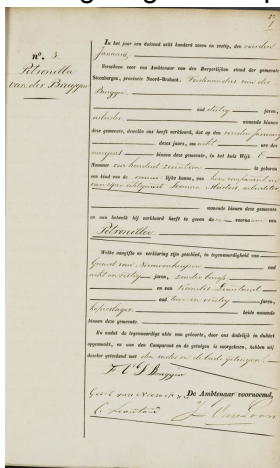 nº. 3
Petronella
van der Bruggen
In het jaar een duizend acht honderd zeven en zestig, den vierden
Januarij,
Verscheen voor ons Ambtenaar van den Burgerlijken stand der gemeente
Steenbergen, provincie Noord-Brabant, Ferdinandus van der
Bruggen
oud dertig jaren,
arbeider, wonende binnen
deze gemeente, dewelke ons heeft verklaard, dat op den vierden Januarij
dezes jaars, om acht ure des
binnen deze gemeente, in het huis Wijk E
Nummer honderd is geboren
een kind van de kunne, bij hem comparant en
van zijne echtgenoot Joanna
wonende binnen deze gemeente
en aan hetwelk hij verklaard heeft te geven de voornaam van
Petronella
Welke aangifte en verklaring zijn geschied, in tegenwoordigheid van
Gerard van oud
acht en veertig jaren, zonder beroep
en van Cornelis
oud twee en veertig jaren,
koperslager beide wonende
binnen deze gemeente.
En nadat de tegenwoordige akte van geboorte, door ons dadelijk in dubbel
opgemaakt, en aan den Comparant en de getuigen is voorgelezen, hebben wij
dezelve geteekend met den vader en de beide getuigen.
De Ambtenaar voornoemd,